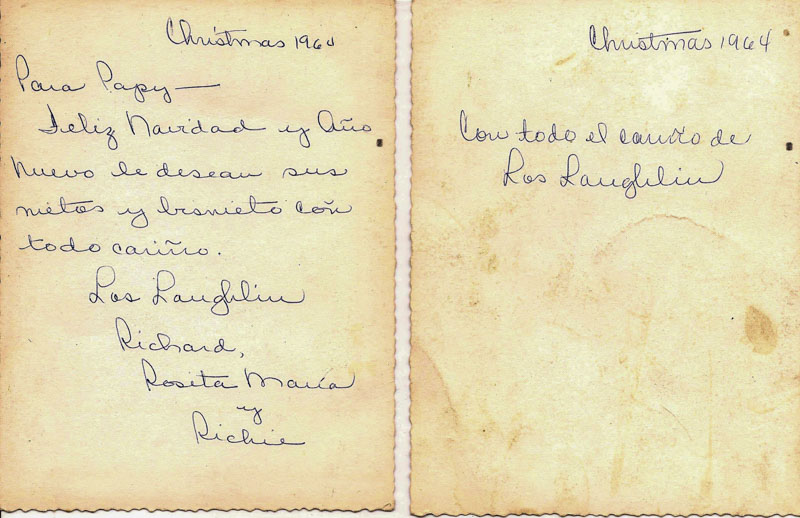 Christmas 1964
Para Papy —
Feliz Navidad y Año
Nuevo le desean sus
nietos y bisnieto con
todo cariño.
Los Laughlin
Richard,
Rosita María
y
Richie
Christmas 1964
Con todo el cariño de
Los Laughlin